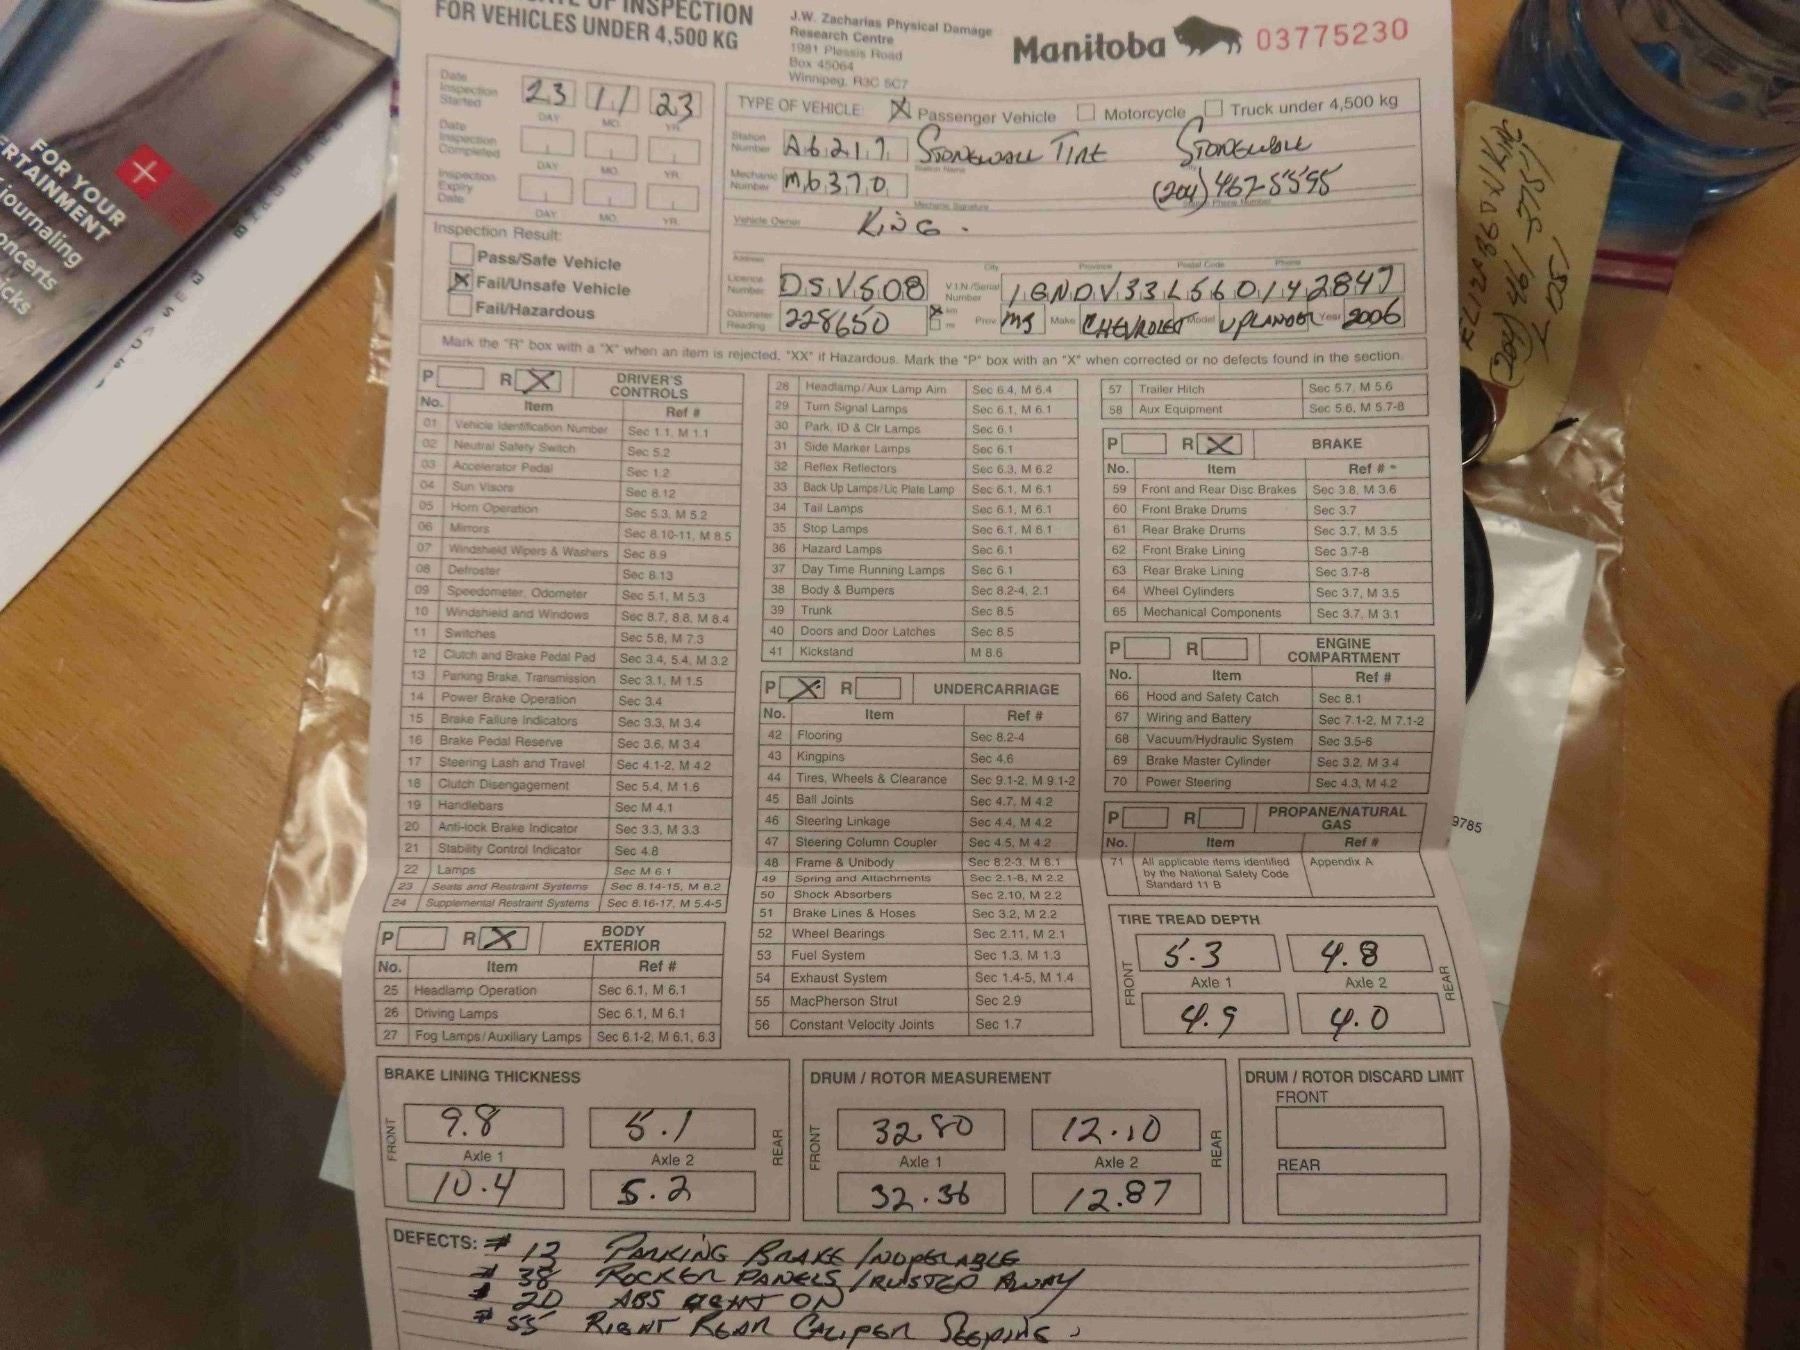 OF INSPECTION
FOR VEHICLES UNDER 4,500 KG
J.W. Zacharias Physical Damage
Research Centre
1981 Plessis Road
Box 45064
Winnipeg, R3C 5C7
Manitoba 03775230
Date Inspection Started 23 11 23
DAY MO. YR.
Date Inspection Completed
DAY MO. YR.
Inspection Expiry Date
DAY MO. YR.
Inspection Result:
Pass/Safe Vehicle
X Fail/Unsafe Vehicle
Fail/Hazardous
TYPE OF VEHICLE: X Passenger Vehicle Motorcycle Truck under 4,500 kg
Station Number A6217 STONEWALL TIRE STONEWALL
Station Name
Mechanic Number M6370 (204) 467-5595
Mechanic Signature Station Phone Number
Vehicle Owner KING.
Address City Province Postal Code Phone
Licence Number DSV508 V.I.N./Serial Number 1GNDV33L56D142847
Odometer Reading 228650 X km mi Prov. MB Make CHEVROLET Model UPLANDER Year 2006
Mark the "R" box with a "X" when an item is rejected, "XX" if Hazardous. Mark the "P" box with an "X" when corrected or no defects found in the section.
P R X DRIVER'S CONTROLS
No. Item Ref #
01 Vehicle Identification Number Sec 1.1, M 1.1
02 Neutral Safety Switch Sec 5.2
03 Accelerator Pedal Sec 1.2
04 Sun Visors Sec 8.12
05 Horn Operation Sec 5.3, M 5.2
06 Mirrors Sec 8.10-11, M 8.5
07 Windshield Wipers & Washers Sec 8.9
08 Defroster Sec 8.13
09 Speedometer, Odometer Sec 5.1, M 5.3
10 Windshield and Windows Sec 8.7, 8.8, M 8.4
11 Switches Sec 5.8, M 7.3
12 Clutch and Brake Pedal Pad Sec 3.4, 5.4, M 3.2
13 Parking Brake, Transmission Sec 3.1, M 1.5
14 Power Brake Operation Sec 3.4
15 Brake Failure Indicators Sec 3.3, M 3.4
16 Brake Pedal Reserve Sec 3.6, M 3.4
17 Steering Lash and Travel Sec 4.1-2, M 4.2
18 Clutch Disengagement Sec 5.4, M 1.6
19 Handlebars Sec M 4.1
20 Anti-lock Brake Indicator Sec 3.3, M 3.3
21 Stability Control Indicator Sec 4.8
22 Lamps Sec M 6.1
23 Seats and Restraint Systems Sec 8.14-15, M 8.2
24 Supplemental Restraint Systems Sec 8.16-17, M 5.4-5
P R X BODY EXTERIOR
No. Item Ref #
25 Headlamp Operation Sec 6.1, M 6.1
26 Driving Lamps Sec 6.1, M 6.1
27 Fog Lamps/Auxiliary Lamps Sec 6.1-2, M 6.1, 6.3
28 Headlamp/Aux Lamp Aim Sec 6.4, M 6.4
29 Turn Signal Lamps Sec 6.1, M 6.1
30 Park, ID & Clr Lamps Sec 6.1
31 Side Marker Lamps Sec 6.1
32 Reflex Reflectors Sec 6.3, M 6.2
33 Back Up Lamps/Lic Plate Lamp Sec 6.1, M 6.1
34 Tail Lamps Sec 6.1, M 6.1
35 Stop Lamps Sec 6.1, M 6.1
36 Hazard Lamps Sec 6.1
37 Day Time Running Lamps Sec 6.1
38 Body & Bumpers Sec 8.2-4, 2.1
39 Trunk Sec 8.5
40 Doors and Door Latches Sec 8.5
41 Kickstand M 8.6
P X R UNDERCARRIAGE
No. Item Ref #
42 Flooring Sec 8.2-4
43 Kingpins Sec 4.6
44 Tires, Wheels & Clearance Sec 9.1-2, M 9.1-2
45 Ball Joints Sec 4.7, M 4.2
46 Steering Linkage Sec 4.4, M 4.2
47 Steering Column Coupler Sec 4.5, M 4.2
48 Frame & Unibody Sec 8.2-3, M 8.1
49 Spring and Attachments Sec 2.1-8, M 2.2
50 Shock Absorbers Sec 2.10, M 2.2
51 Brake Lines & Hoses Sec 3.2, M 2.2
52 Wheel Bearings Sec 2.11, M 2.1
53 Fuel System Sec 1.3, M 1.3
54 Exhaust System Sec 1.4-5, M 1.4
55 MacPherson Strut Sec 2.9
56 Constant Velocity Joints Sec 1.7
57 Trailer Hitch Sec 5.7, M 5.6
58 Aux Equipment Sec 5.6, M 5.7-8
P R X BRAKE
No. Item Ref #
59 Front and Rear Disc Brakes Sec 3.8, M 3.6
60 Front Brake Drums Sec 3.7
61 Rear Brake Drums Sec 3.7, M 3.5
62 Front Brake Lining Sec 3.7-8
63 Rear Brake Lining Sec 3.7-8
64 Wheel Cylinders Sec 3.7, M 3.5
65 Mechanical Components Sec 3.7, M 3.1
P R ENGINE COMPARTMENT
No. Item Ref #
66 Hood and Safety Catch Sec 8.1
67 Wiring and Battery Sec 7.1-2, M 7.1-2
68 Vacuum/Hydraulic System Sec 3.5-6
69 Brake Master Cylinder Sec 3.2, M 3.4
70 Power Steering Sec 4.3, M 4.2
P R PROPANE/NATURAL GAS
No. Item Ref #
71 All applicable items identified Appendix A
by the National Safety Code
Standard 11 B
TIRE TREAD DEPTH
FRONT 5.3 4.8 REAR
Axle 1 Axle 2
4.9 4.0
BRAKE LINING THICKNESS
FRONT 9.8 5.1 REAR
Axle 1 Axle 2
10.4 5.2
DRUM / ROTOR MEASUREMENT
FRONT 32.80 12.10 REAR
Axle 1 Axle 2
32.36 12.87
DRUM / ROTOR DISCARD LIMIT
FRONT
REAR
DEFECTS: # 13 PARKING BRAKE/INOPERABLE
# 38 ROCKER PANELS/RUSTED AWAY
# 20 ABS LIGHT ON
# 55 RIGHT REAR CALIPER SEEPING.
FOR YOUR
journaling
ELIZABETH KING
(204) 461-2751
9785